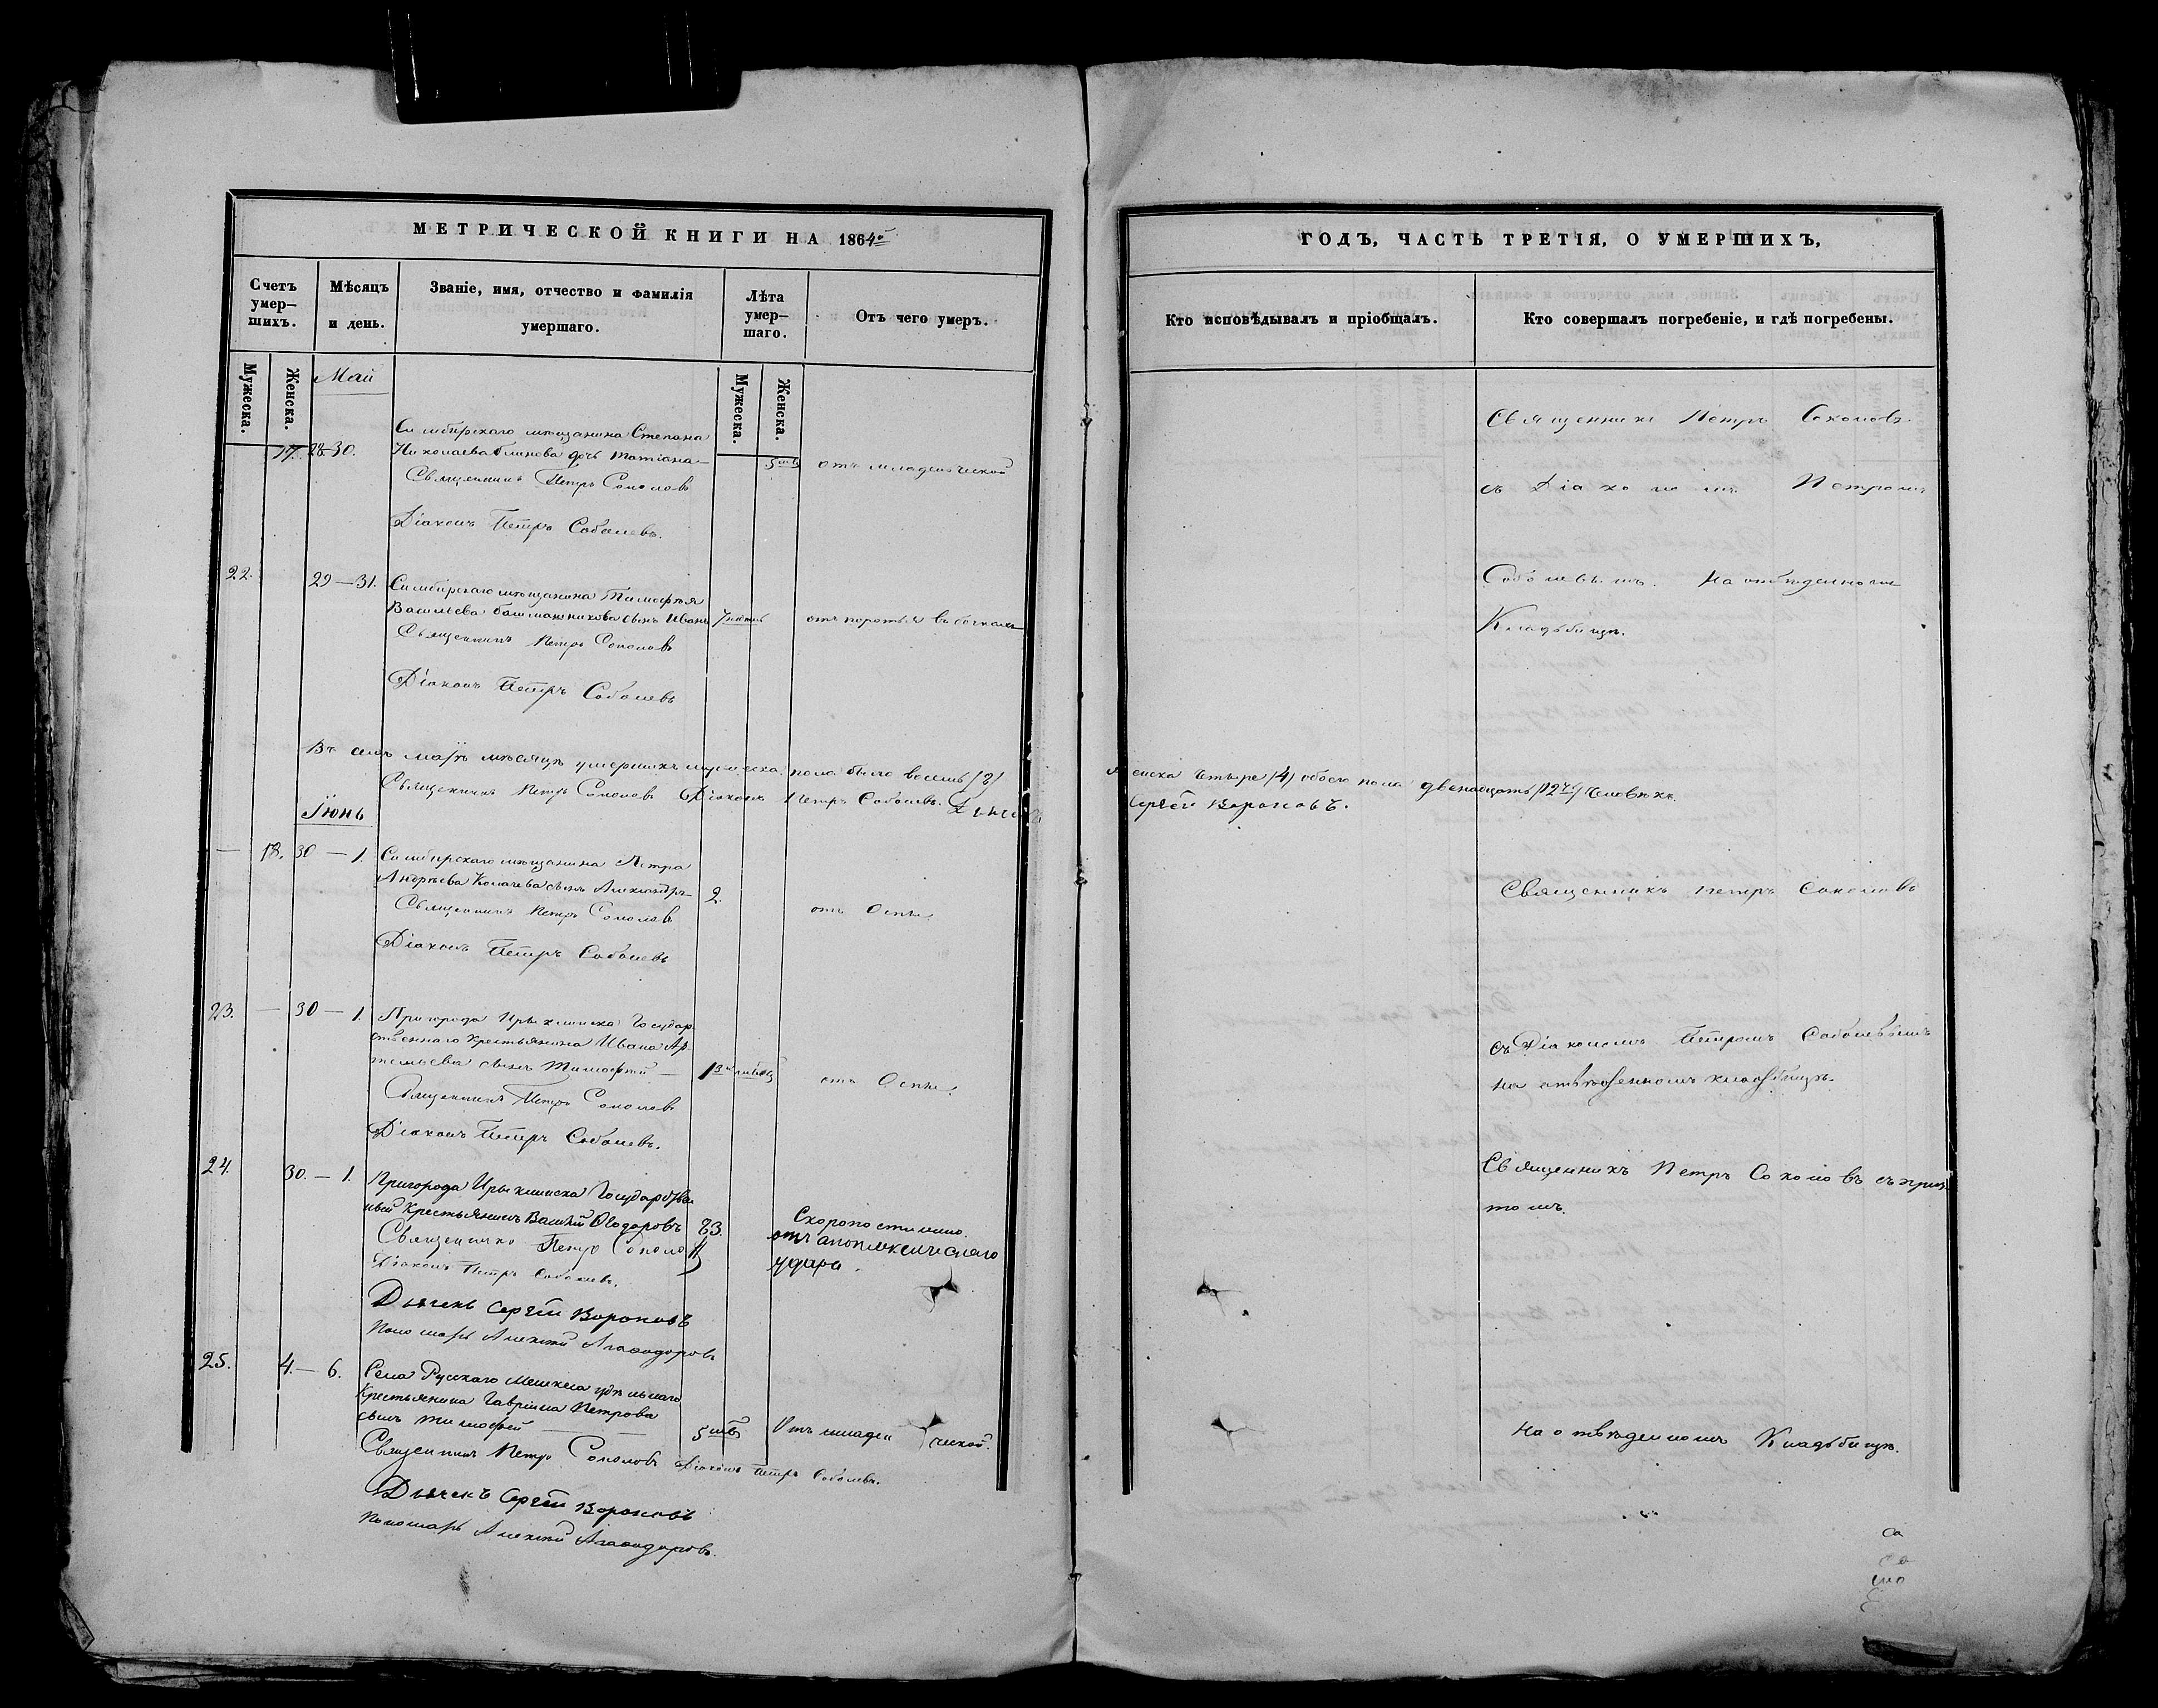 МЕТРИЧЕСКОЙ КНИГИ НА 1864й
Счетъ умер-шихъ.
Мѣсяцъ и день.
Званіе, имя, отчество и фамилія умершаго.
Лѣта умер-шаго.
Отъ чего умеръ.
Мужеска.
Женска.
Мужеска.
Женска.
Май
17. 28-30. Симбирскаго мѣщанина Степана
Николаева Блинова дочь Татіана
5 отъ младенческой
Священникъ Петръ Соколовъ
Діаконъ Петръ Соболевъ.
22. 29—31. Симбирскаго мѣщанина Тимофѣя
Васильева Башмашникова сынъ Иванъ 7
Священникъ Петръ Соколовъ
Діаконъ Петръ Соболевъ
Въ семъ маѣ мѣсяцѣ умершихъ мужеска пола было восемь /8/
Священникъ Петръ Соколовъ Діаконъ Петръ Соболевъ.
Іюнь
— 18. 30 — 1. Симбирскаго мѣщанина Петра
Андрѣева сынъ Александръ 2.
отъ Оспы
Священникъ Петръ Соколовъ
Діаконъ Петръ Соболевъ
23. — 30 — 1. Пригорода Ерыклинска Государ-
ственнаго крестьянина Ивана Ар-
сынъ Тимофей —
отъ Оспы.
Священникъ Петръ Соколовъ
Діаконъ Петръ Соболевъ.
24. 30. — 1. Пригорода Ерыклинска
Крестьянинъ Василій Ѳеодоровъ 83.
Скоропостижно.
отъ апоплексическаго
удара.
Священникъ Петръ Соколовъ
Діаконъ Петръ Соболевъ.
Дьячекъ Сергѣй Вороновъ
Пономарь Алексѣй
25. 4. — 6. Села Русскаго Мелекеса удѣльнаго
Крестьянина Гавріила Петрова
сынъ Тимофей — 5 Отъ младенческой.
Священникъ Петръ Соколовъ Діаконъ Петръ Соболевъ.
Дьячекъ Сергѣй Вороновъ
Пономарь Алексѣй
ГОДЪ, ЧАСТЬ ТРЕТІЯ, О УМЕРШИХЪ,
Кто исповѣдывалъ и пріобщалъ.
Кто совершалъ погребеніе, и гдѣ погребены.
Священникъ Петръ Соколовъ
съ Діакономъ Петромъ
Соболевымъ. На отведенномъ
Кладбищѣ.
женска четыре /4/ обоего пола двенадцать /12ть/ человѣкъ.
Сергѣй Вороновъ.
Священникъ Петръ Соколовъ
съ Діакономъ Петромъ Соболевымъ
на отведенномъ кладбищѣ.
Священникъ Петръ Соколовъ съ прич-
томъ.
На отведенномъ Кладбищѣ.